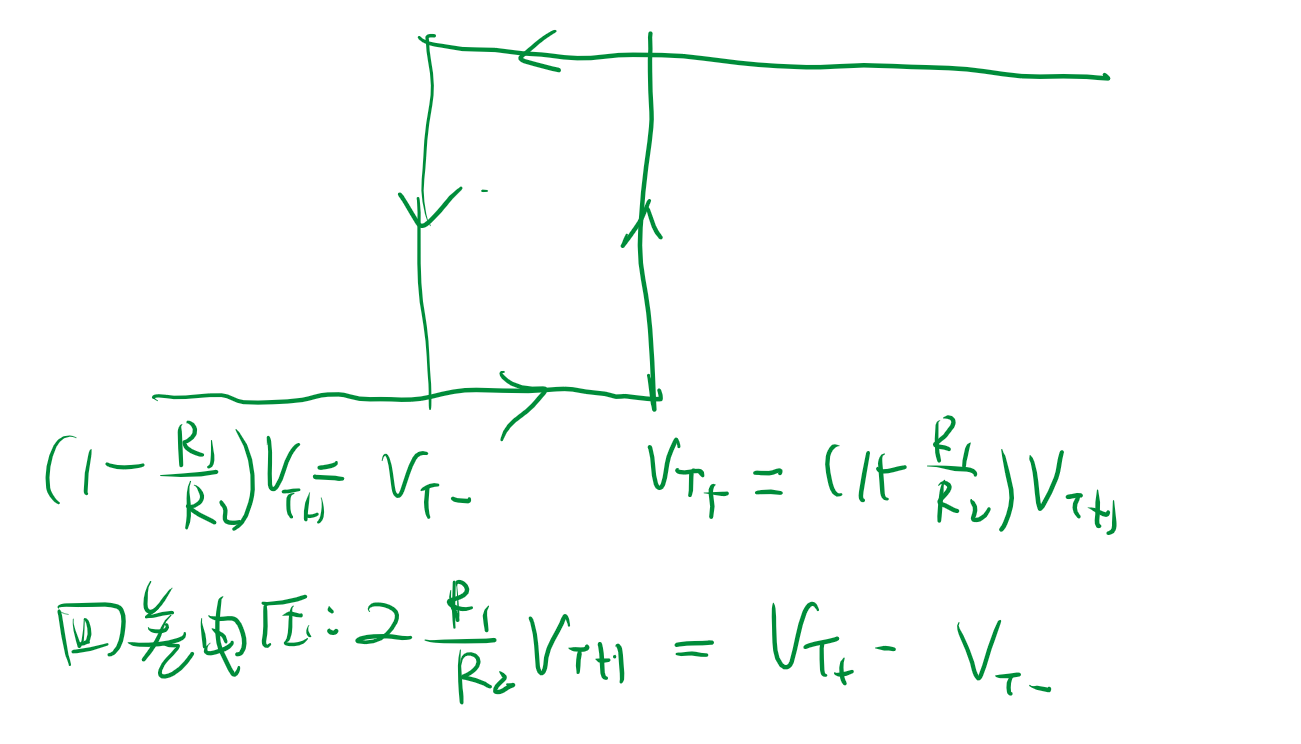 (1-R1/R2)VTH=VT- VT+=(1+R1/R2)VTH
回差电压:2R1/R2VTH=VT+-VT-